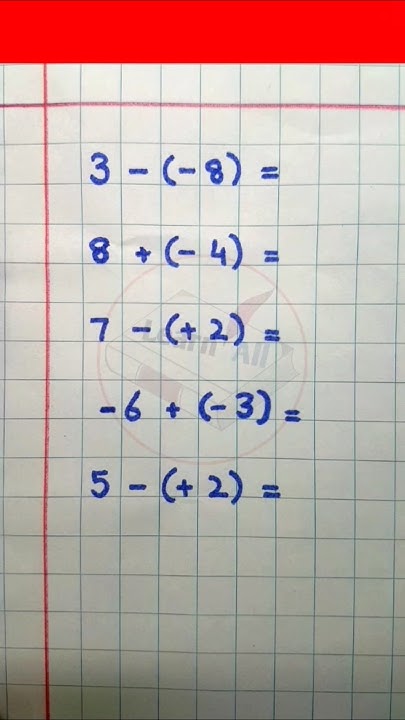 3 - (- 8) =
8 + (- 4) =
Learn All
7 - (+ 2) =
- 6 + (- 3) =
5 - (+ 2) =